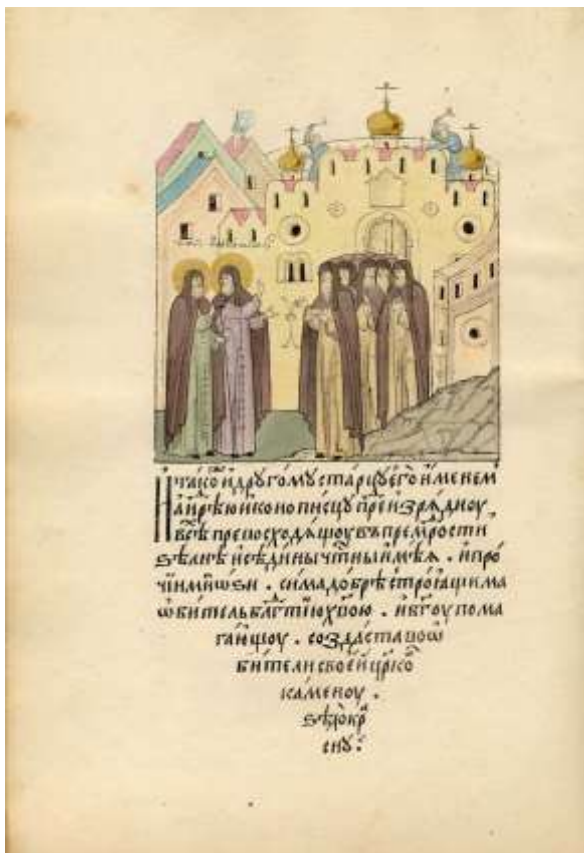 И҆та́коиⷤ и҆дрꙋго́мꙋ ста́рцꙋ е҆го̀ и҆́менемъ
а҆н̾дрѣ́ю и҆коно писцꙋ̀ преи҆зрѧ́дноꙋ
всѣ́хъ превосходѧ́щоꙋ въпремⷣрости
ѕѣлнѣ̀ и҆сѣди́ны чⷭ҇тны и҆мѣ́ѧ . и҆про
чіи́мъ мнѡ́ѕи . си́ма до́брѣ строѧ́щима
ѡ҆би́тель блгⷣтїю хвⷭ҇ою . и҆бг҃оу пома
га́ющоу . созда́ста воѡ
би́тели свое́й цр҃ко́вь
ка́меноу .
ѕѣлѡ̀ кра
снꙋ̀ :